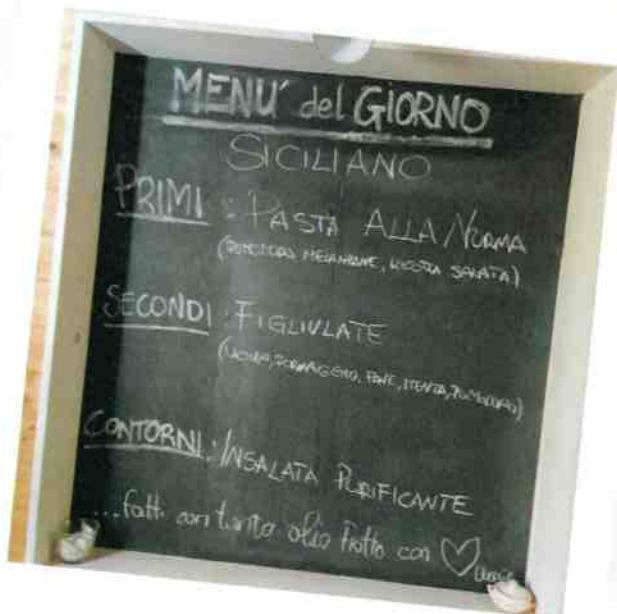 MENU' del GIORNO
SICILIANO
PRIMI : PASTA ALLA NORMA
(POMODORO MELANZANE, RICOTTA SALATA)
SECONDI : FIGLIULATE
(UOVA, FORMAGGIO, PANE, MENTA, POMODORO)
CONTORNI : INSALATA PURIFICANTE
...fatti con tanto olio fatto con